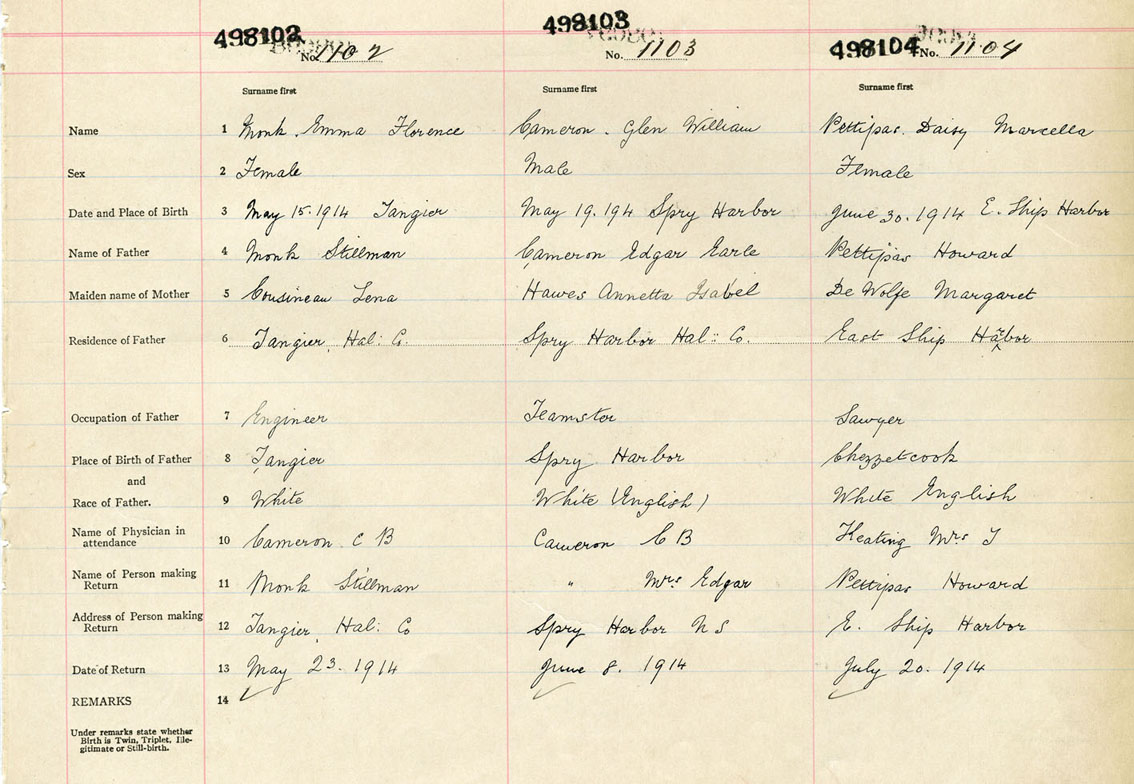 498102 498103 498104
No. 1102 No. 1103 No. 1104
Surname first Surname first Surname first
Name 1 Monk. Emma Florence Cameron. Glen William Pettipas. Daisy Marcella
Sex 2 Female Male Female
Date and Place of Birth 3 May 15. 1914 Tangier May 19. 194 Spry Harbor June 30. 1914 E. Ship Harbor
Name of Father 4 Monk Stillman Cameron Edgar Earle Pettipas Howard
Maiden name of Mother 5 Cousineau Lena Hawes Annetta Isabel De Wolfe Margaret
Residence of Father 6 Tangier, Hal: Co. Spry Harbor Hal:: Co. East Ship Harbor
Occupation of Father 7 Engineer Teamster Sawyer
Place of Birth of Father 8 Tangier Spry Harbor Chezzetcook
and
Race of Father. 9 White White (English) White English
Name of Physician in attendance 10 Cameron. C B Cameron C B Keating Mrs T
Name of Person making Return 11 Monk Stillman " Mrs Edgar Pettipas Howard
Address of Person making Return 12 Tangier, Hal: Co Spry Harbor N S E. Ship Harbor
Date of Return 13 May 23. 1914 June 8. 1914 July 20. 1914
REMARKS 14
Under remarks state whether
Birth is Twin, Triplet, Ille-
gitimate or Still-birth.